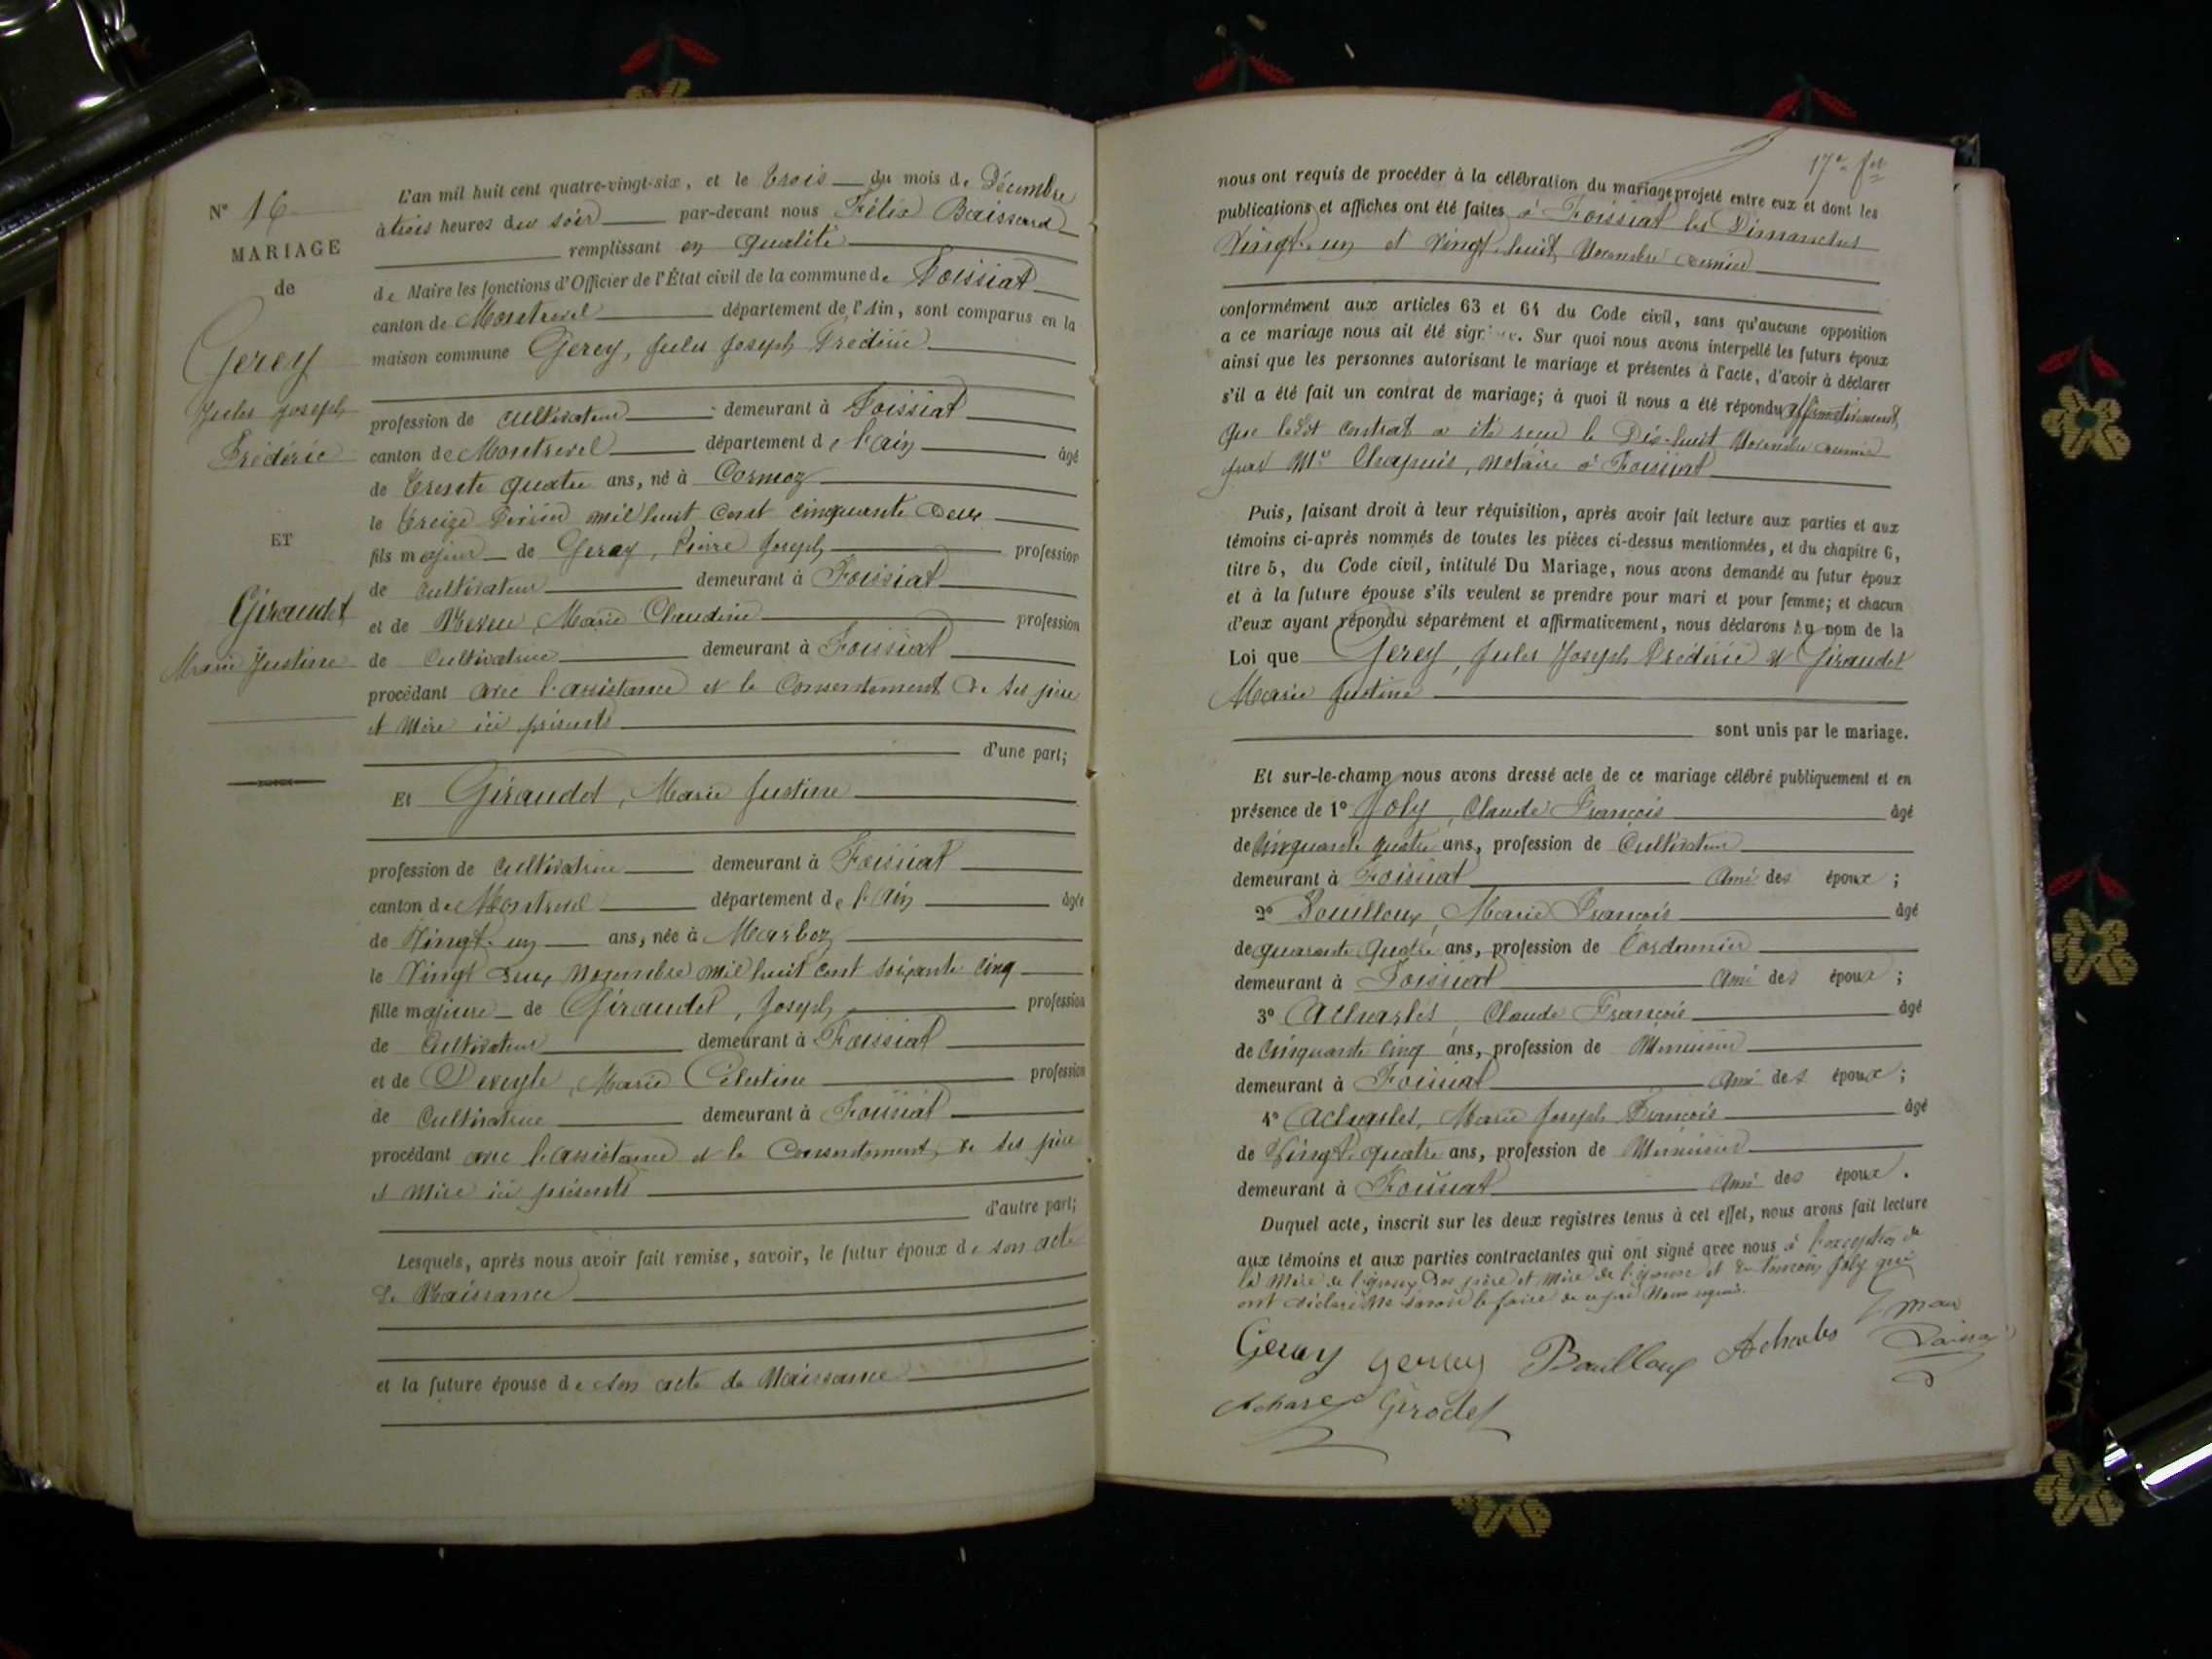 N° 16
MARIAGE
de
Gerey
Jules Joseph
Frédéric
ET
Giraudet
Marie Justine
L'an mil huit cent quatre-vingt-six, et le trois du mois de Décembre
à trois heures du soir par-devant nous Félix
remplissant en qualité
de Maire les fonctions d'Officier de l'État civil de la commune de Foissiat
canton de Montrevel département de l'Ain, sont comparus en la
maison commune Gerey, Jules Joseph Frédéric
profession de cultivateur demeurant à Foissiat
canton de Montrevel département de l'ain âgé
de trente quatre ans, né à Cormoz
le treize Février mil huit cent cinquante deux
fils majeur de Gerey, Pierre Joseph profession
de cultivateur demeurant à Foissiat
et de Marie Claudine profession
de Cultivatrice demeurant à Foissiat
procédant avec l'assistance et le Consentement de ses père
et mère ici présents
d'une part;
Et Giraudet, Marie Justine
profession de cultivatrice demeurant à Foissiat
canton de Montrevel département de l'Ain âgée
de Vingt-un ans, née à Marboz
le Vingt deux Novembre mil huit cent soixante cinq
fille majeure de Giraudet, Joseph profession
de Cultivateur demeurant à Foissiat
et de Deveyle, Marie Célestine profession
de Cultivatrice demeurant à Foissiat
procédant avec l'assistance et le Consentement de ses père
et mère ici présents
d'autre part;
Lesquels, après nous avoir fait remise, savoir, le futur époux de son acte
de Naissance
et la future épouse de son acte de Naissance
17e fet
nous ont requis de procéder à la célébration du mariage projeté entre eux et dont les
publications et affiches ont été faites à Foissiat les Dimanches
Vingt-un et Vingt-huit Novembre dernier
conformément aux articles 63 et 64 du Code civil, sans qu'aucune opposition
a ce mariage nous ait été sig. Sur quoi nous avons interpellé les futurs époux
ainsi que les personnes autorisant le mariage et présentes à l'acte, d'avoir à déclarer
s'il a été fait un contrat de mariage; à quoi il nous a été répondu affirmativement
que ledit contrat a été reçu le Dix-huit Novembre dernier
par Me Chapuis, notaire à Foissiat
Puis, faisant droit à leur réquisition, après avoir fait lecture aux parties et aux
témoins ci-après nommés de toutes les pièces ci-dessus mentionnées, et du chapitre 6,
titre 5, du Code civil, intitulé Du Mariage, nous avons demandé au futur époux
et à la future épouse s'ils veulent se prendre pour mari et pour femme; et chacun
d'eux ayant répondu séparément et affirmativement, nous déclarons au nom de la
Loi que Gerey, Jules Joseph Frédéric et Giraudet
Marie Justine
sont unis par le mariage.
Et sur-le-champ nous avons dressé acte de ce mariage célébré publiquement et en
présence de 1° Joly, Claude François âgé
de Cinquante quatre ans, profession de Cultivateur
demeurant à Foissiat Ami des époux ;
2° Bouilloux, Marie François âgé
de quarante quatre ans, profession de Cordonnier
demeurant à Foissiat Ami des époux ;
3° Acharles, Claude François âgé
de Cinquante Cinq ans, profession de Menuisier
demeurant à Foissiat Ami des époux ;
4° Acharles, Marie Joseph François âgé
de Vingt-quatre ans, profession de Menuisier
demeurant à Foissiat Ami des époux.
Duquel acte, inscrit sur les deux registres tenus à cet effet, nous avons fait lecture
aux témoins et aux parties contractantes qui ont signé avec nous à l'exception de
la Mère de l'époux des père et Mère de l'épouse et du témoin Joly qui
ont déclaré ne savoir le faire de ce par Nous requis.
Gerey gerey Bouilloux Acharles
Girodet